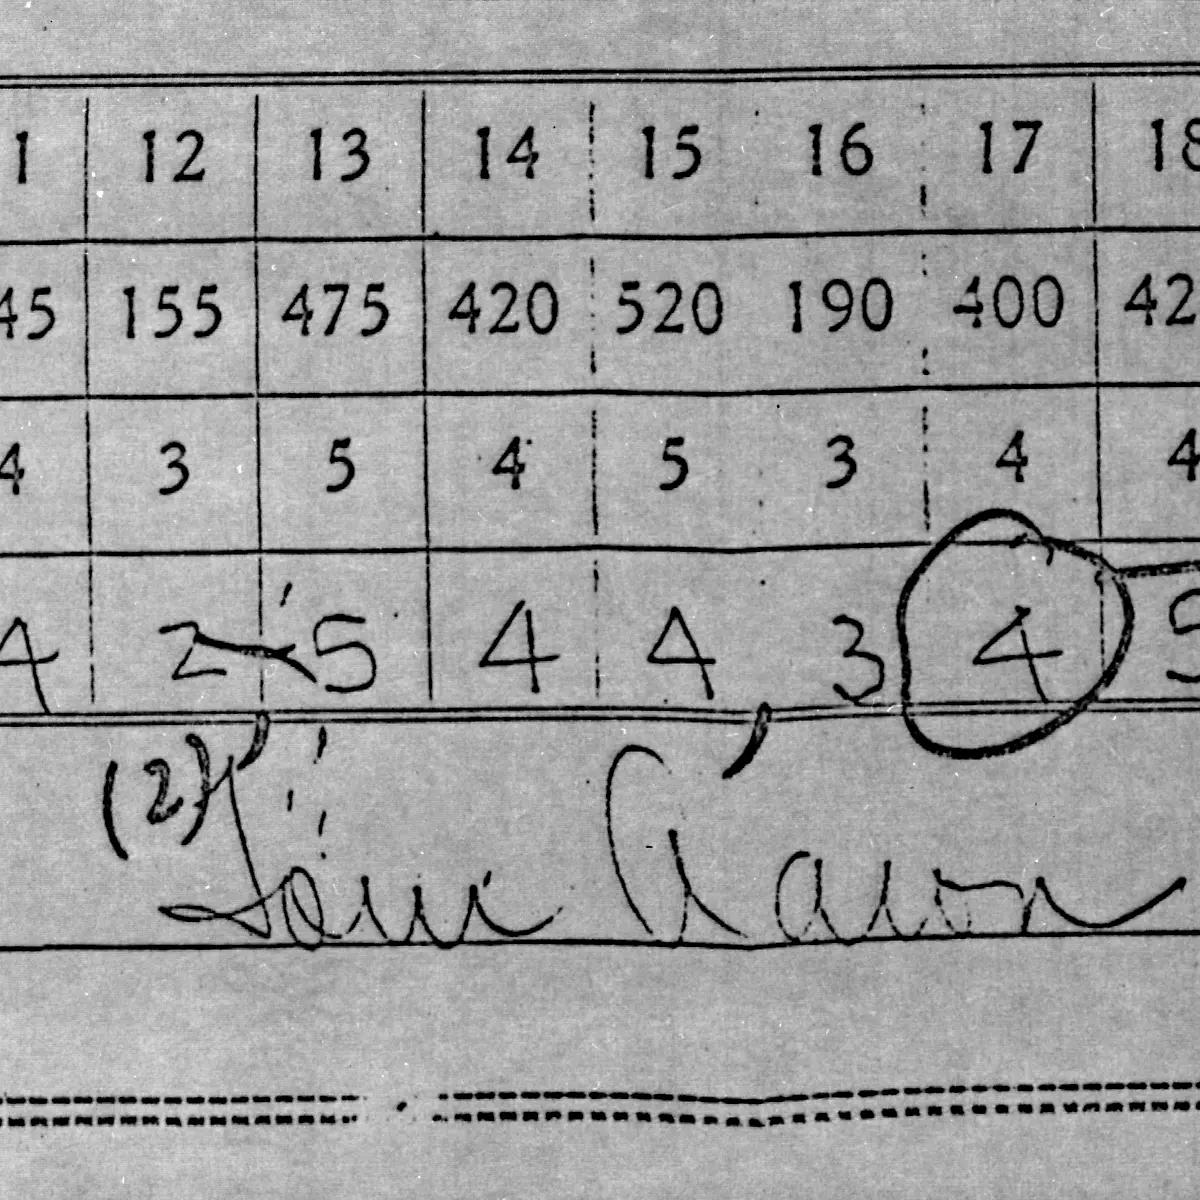 1 12 13 14 15 16 17 18
45 155 475 420 520 190 400 42
4 3 5 4 5 3 4 4
4 2 5 4 4 3 4 5
(2)